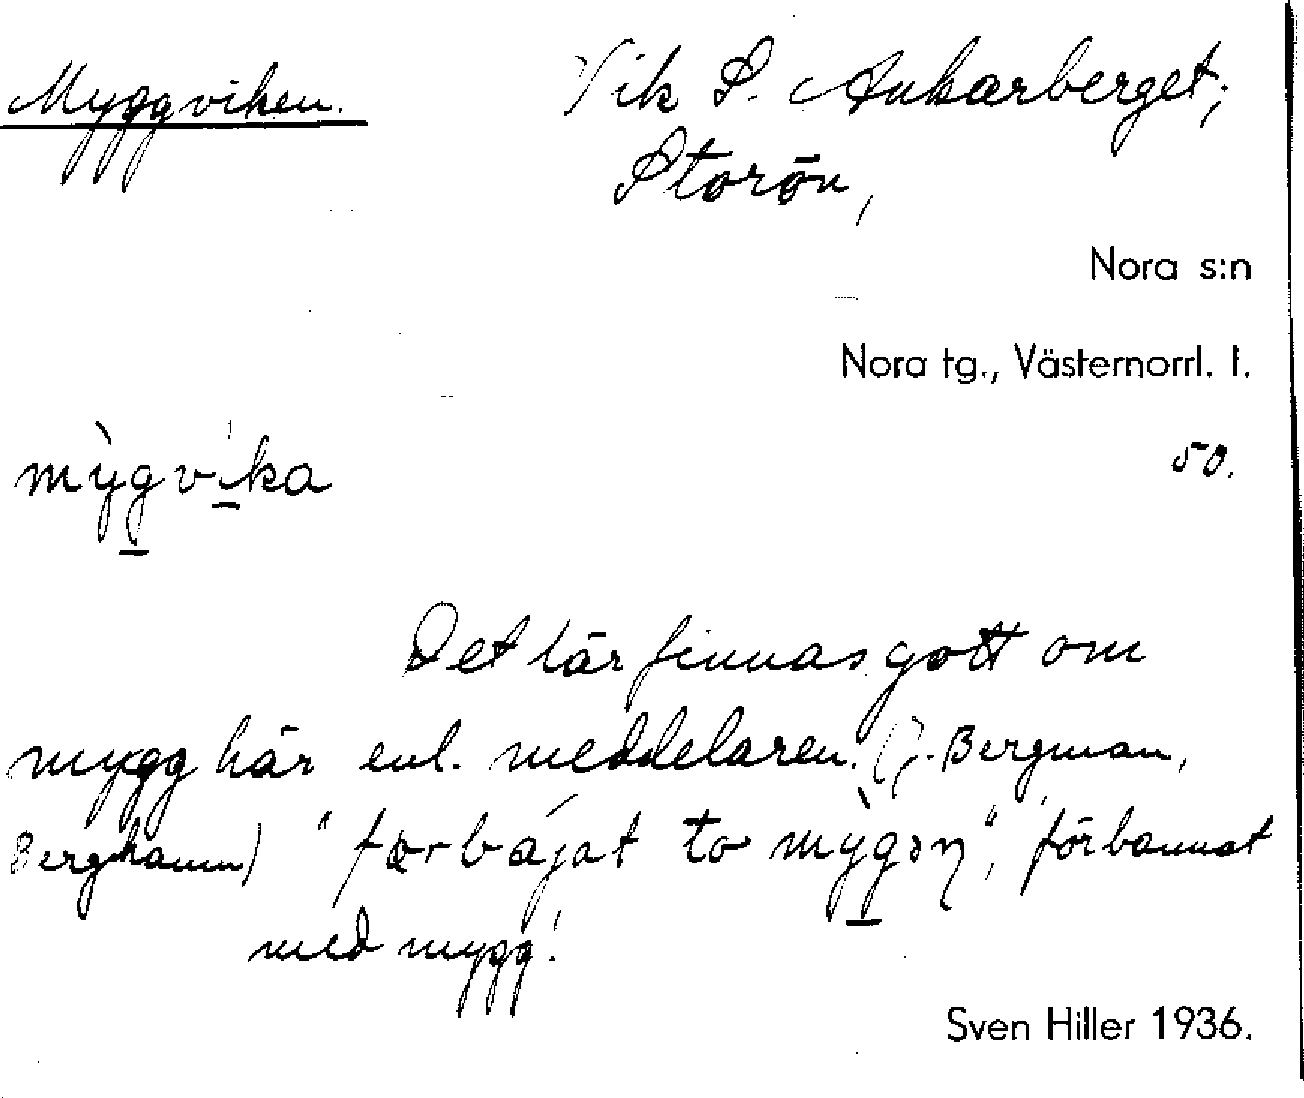 Myggviken.
Vik S. Ankarberget;
Storön,
Nora s:n
Nora tg., Västernorrl. l.
50.
mỳg̲ví̲ka
Det lär finnas gott om
mygg här enl. meddelaren. (J. Bergman,
Berghamn) "förbájat to mỳg̲əŋ", 'förbannat
med mygg.'
Sven Hiller 1936.